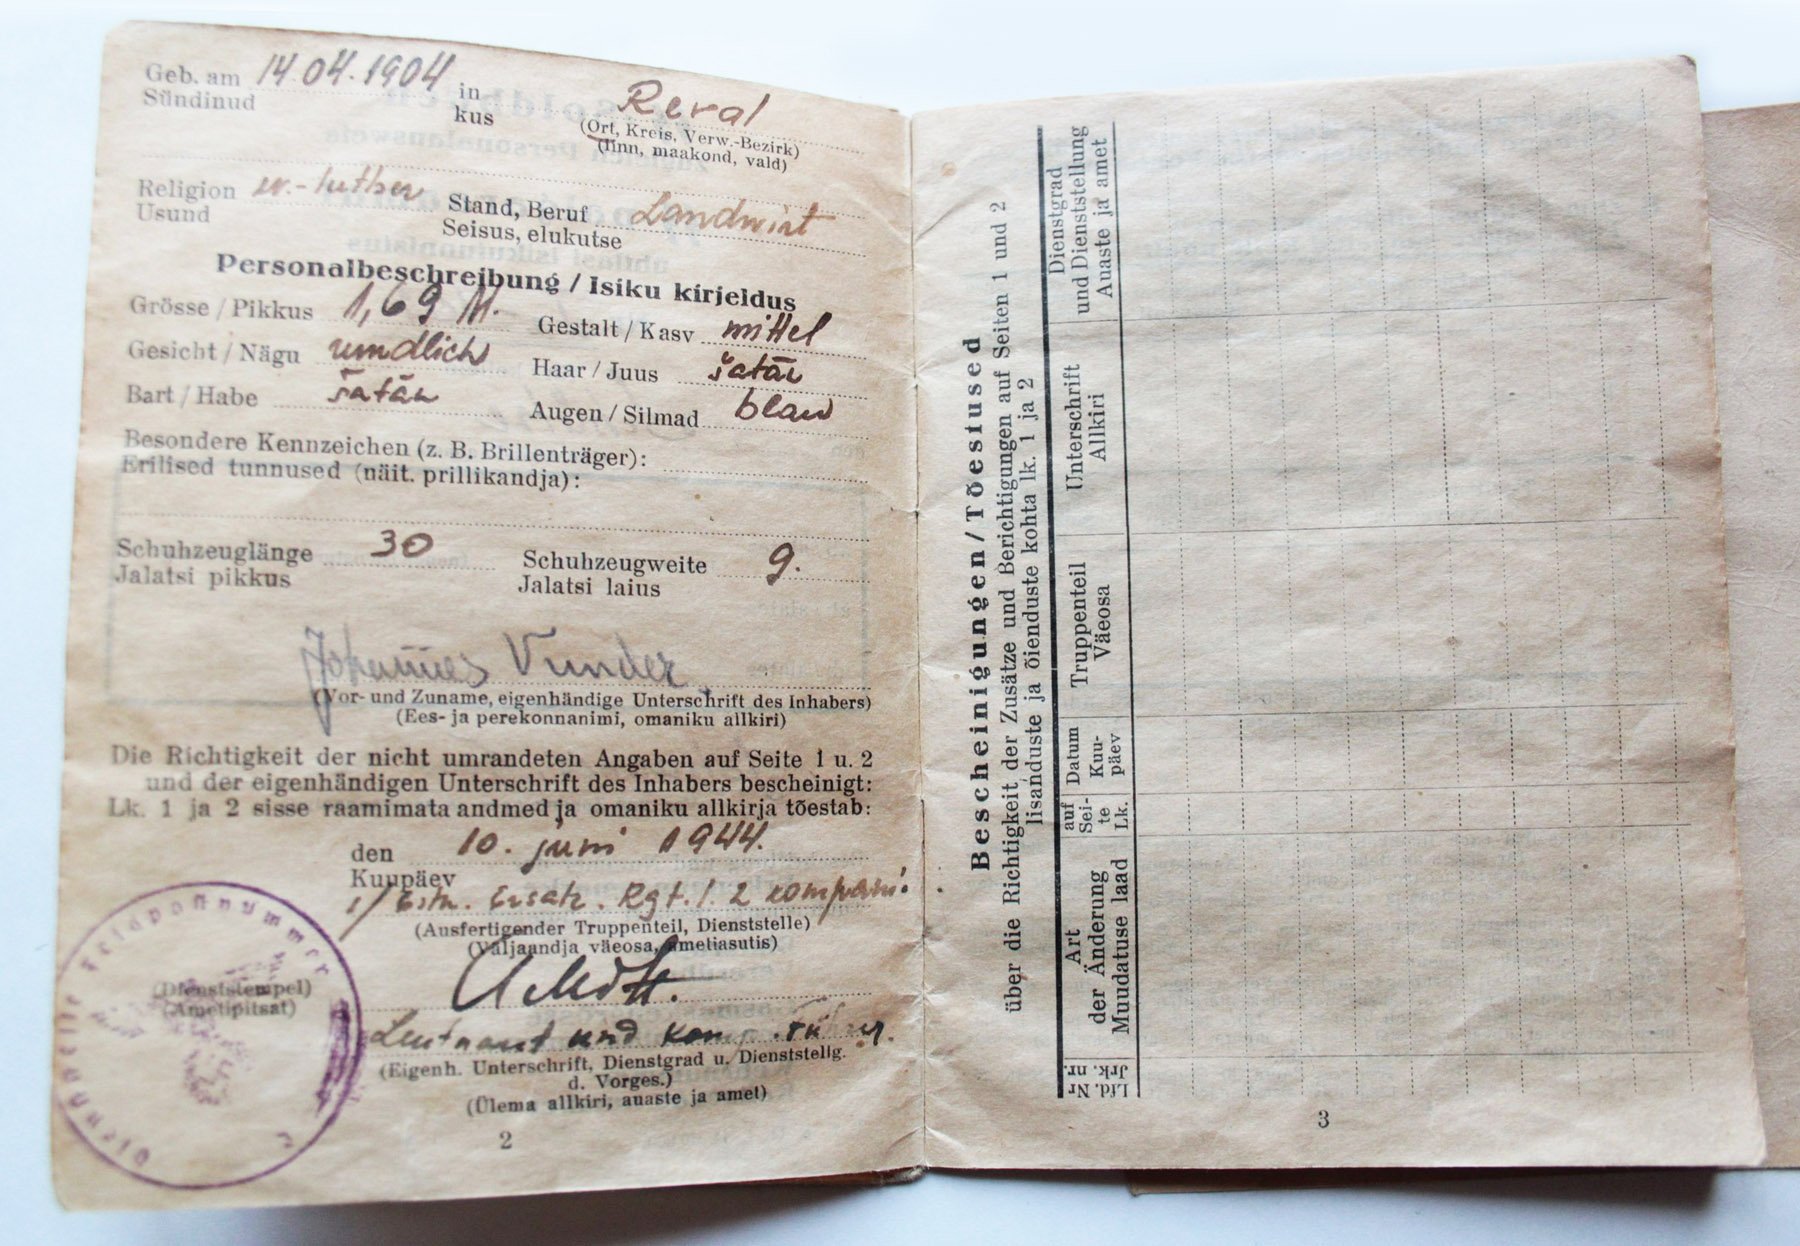 Geb. am 14.04.1904 in Reval
Sündinud kus
(Ort, Kreis, Verw.-Bezirk)
(linn, maakond, vald)
Religion ev.-luther Stand, Beruf Landwirt
Usund Seisus, elukutse
Personalbeschreibung / Isiku kirjeldus
Grösse / Pikkus 1,69 M. Gestalt / Kasv mittel
Gesicht / Nägu rundlich Haar / Juus šatän
Bart / Habe šatän Augen / Silmad blau
Besondere Kennzeichen (z. B. Brillenträger):
Erilised tunnused (näit. prillikandja):
Schuhzeuglänge 30 Schuhzeugweite 9.
Jalatsi pikkus Jalatsi laius
Johannes Vunder
(Vor- und Zuname, eigenhändige Unterschrift des Inhabers)
(Ees- ja perekonnanimi, omaniku allkiri)
Die Richtigkeit der nicht umrandeten Angaben auf Seite 1 u. 2
und der eigenhändigen Unterschrift des Inhabers bescheinigt:
Lk. 1 ja 2 sisse raamimata andmed ja omaniku allkirja tõestab:
den 10. juni 1944.
Kuupäev
1/ Estn. Ersatz. Rgt. 2 kompani.
(Ausfertigender Truppenteil, Dienststelle)
(Väljaandja väeosa, ametiasutis)
(Dienststempel)
(Ametipitsat)
Dienststelle Feldpostnummer
Leutnant und Komp.
(Eigenh. Unterschrift, Dienstgrad u. Dienststellg.
d. Vorges.)
(Ülema allkiri, auaste ja amet)
2
Bescheinigungen / Tõestused
über die Richtigkeit der Zusätze und Berichtigungen auf Seiten 1 und 2
lisanduste ja õienduste kohta lk. 1 ja 2
Lfd. Nr
Jrk. nr.
Art
der Änderung
Muudatuse laad
auf
Sei-
te
Lk.
Datum
Kuu-
päev
Truppenteil
Väeosa
Unterschrift
Allkiri
Dienstgrad
und Dienststellung
Auaste ja amet
3